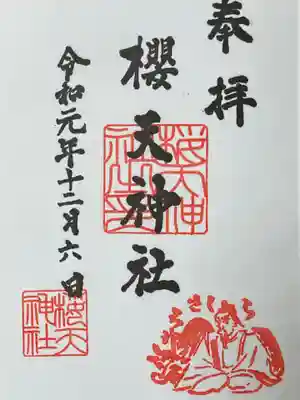 奉拝
櫻天神社
令和元年十二月六日
櫻天神
社之印
櫻天
神社